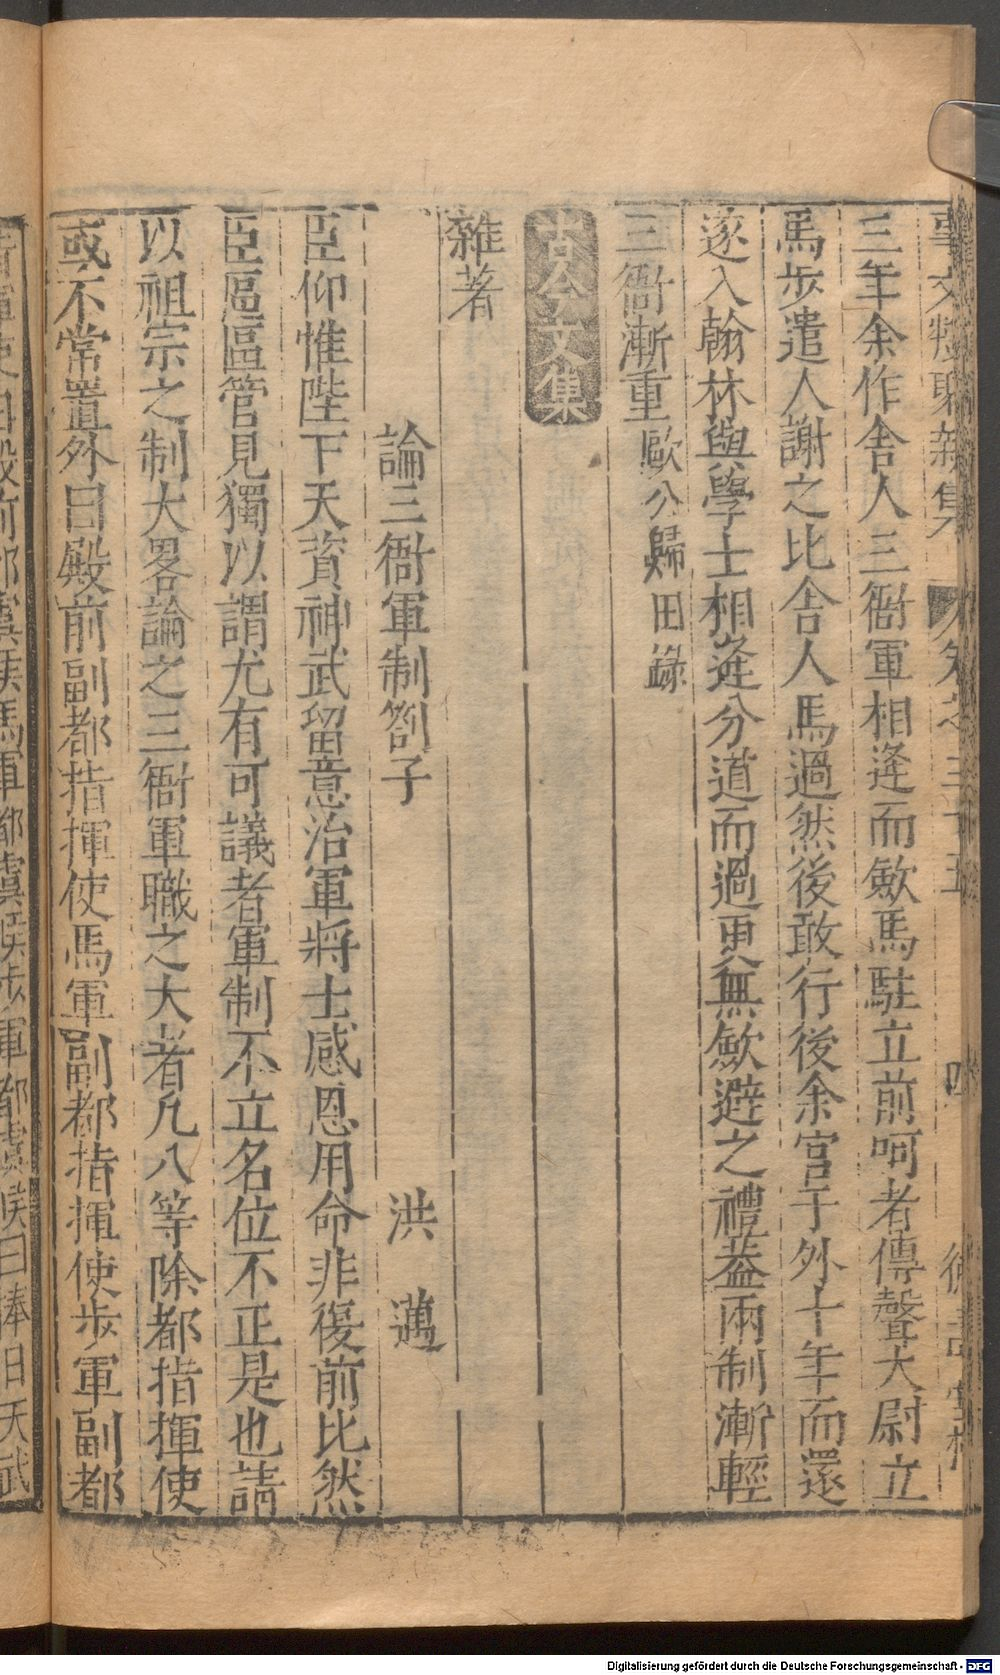 事文類聚新集 卷之三十五 四
三年余作舍人三衙軍相逢而歛馬駐立前呵者傳聲大尉立
馬步遣人謝之比舍人馬過然後敢行後余官于外十年而還
遂入翰林與學士相逢分道而過更無歛避之禮葢兩制漸輕
三衙漸重歐公歸田錄
古今文集
雜著
論三衙軍制劄子 洪 邁
臣仰惟陛下天資神武留意治軍將士感恩用命非復前比然
臣區區管見獨以謂尤有可議者軍制不立名位不正是也請
以祖宗之制大畧論之三衙軍職之大者凡八等除都指揮使
或不常置外曰殿前副都指揮使馬軍副都指揮使步軍副都
指揮使曰殿前都虞候馬軍都虞候步軍都虞候曰捧日天武
Digitalisierung gefördert durch die Deutsche Forschungsgemeinschaft - DFG